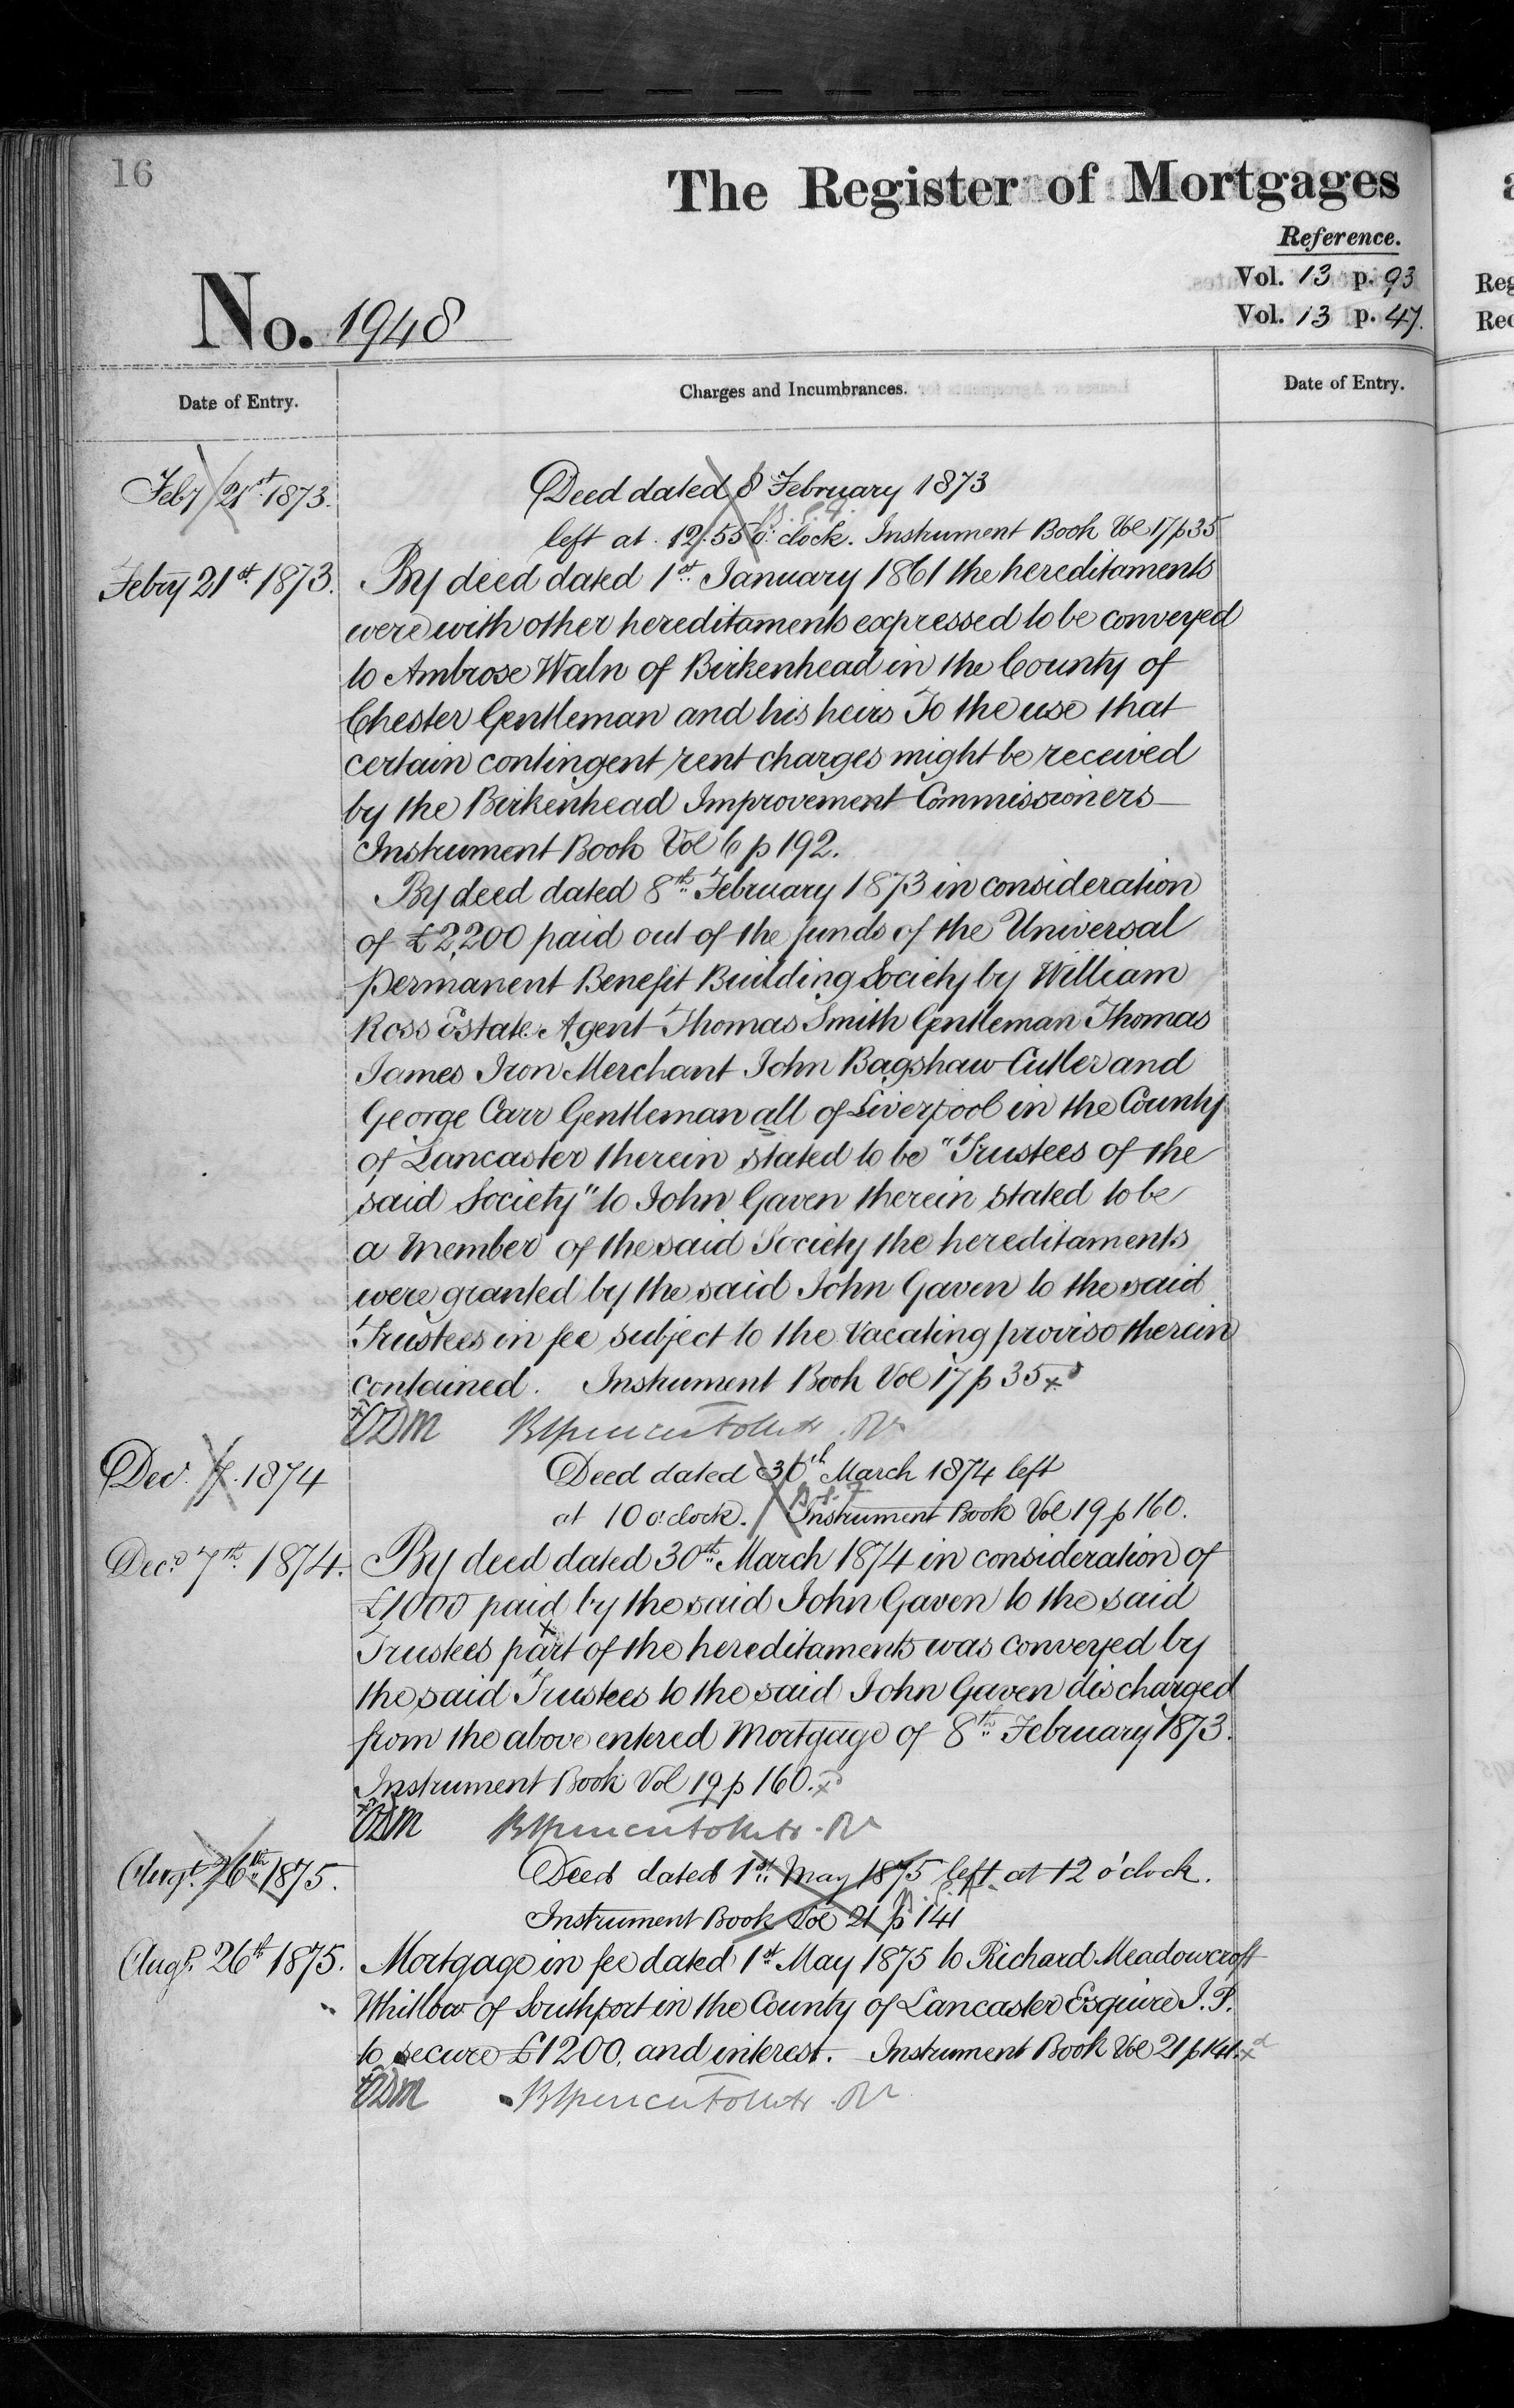 16
The Register of Mortgages
Reference.
Vol. 13 p. 93
Vol. 13 p. 47.
No. 1948
Date of Entry.
Charges and Incumbrances.
Date of Entry.
Feby 21st 1873.
Deed dated 8 February 1873
left at 12.55 o'clock. Instrument Book Vol 17 p 35
Febry 21st 1873.
By deed dated 1st January 1861 the hereditaments
were with other hereditaments expressed to be conveyed
to Ambrose Waln of Birkenhead in the County of
Chester Gentleman and his heirs To the use that
certain contingent rent charges might be received
by the Birkenhead Improvement Commissioners
Instrument Book Vol 6 p 192.
By deed dated 8th February 1873 in consideration
of £2,200 paid out of the funds of the Universal
Permanent Benefit Building Society by William
Ross Estate Agent Thomas Smith Gentleman Thomas
James Iron Merchant John Bagshaw Cutler and
George Carr Gentleman all of Liverpool in the County
of Lancaster therein stated to be "Trustees of the
said Society" to John Gaven therein stated to be
a member of the said Society the hereditaments
were granted by the said John Gaven to the said
Trustees in fee subject to the Vacating proviso therein
contained. Instrument Book Vol 17 p 35
Decr. 7. 1874
Deed dated 30th March 1874 left
at 10 o'clock. Instrument Book Vol 19 p 160.
Decr 7th 1874.
By deed dated 30th March 1874 in consideration of
£1000 paid by the said John Gaven to the said
Trustees part of the hereditaments was conveyed by
the said Trustees to the said John Gaven discharged
from the above entered Mortgage of 8th February 1873.
Instrument Book Vol 19 p 160.
Augt. 26th 1875.
Deed dated 1st May 1875 left at 12 o'clock.
Instrument Book Vol 21 p 141
Augt. 26th 1875.
Mortgage in fee dated 1st May 1875 to Richard Meadowcroft
Whitlow of Southport in the County of Lancaster Esquire J. P.
to secure £1200. and interest. Instrument Book Vol 21 p 141.